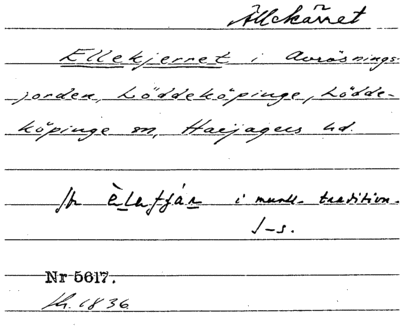 Ällekärret
Ellekjerret i Avrösnings-
jorden, Löddeköpinge, Lödde-
köpinge sn, Harjagers hd.
i muntl. tradition.
J-s.
Nr 5617.
1836